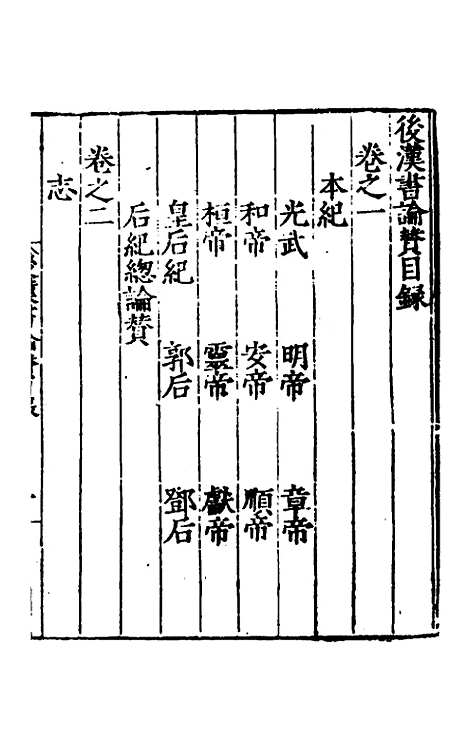 後漢書論賛目録
卷之一
本紀
光武 明帝 章帝
和帝 安帝 順帝
桓帝 靈帝 獻帝
皇后紀 郭后 鄧后
后紀總論賛
卷之二
志